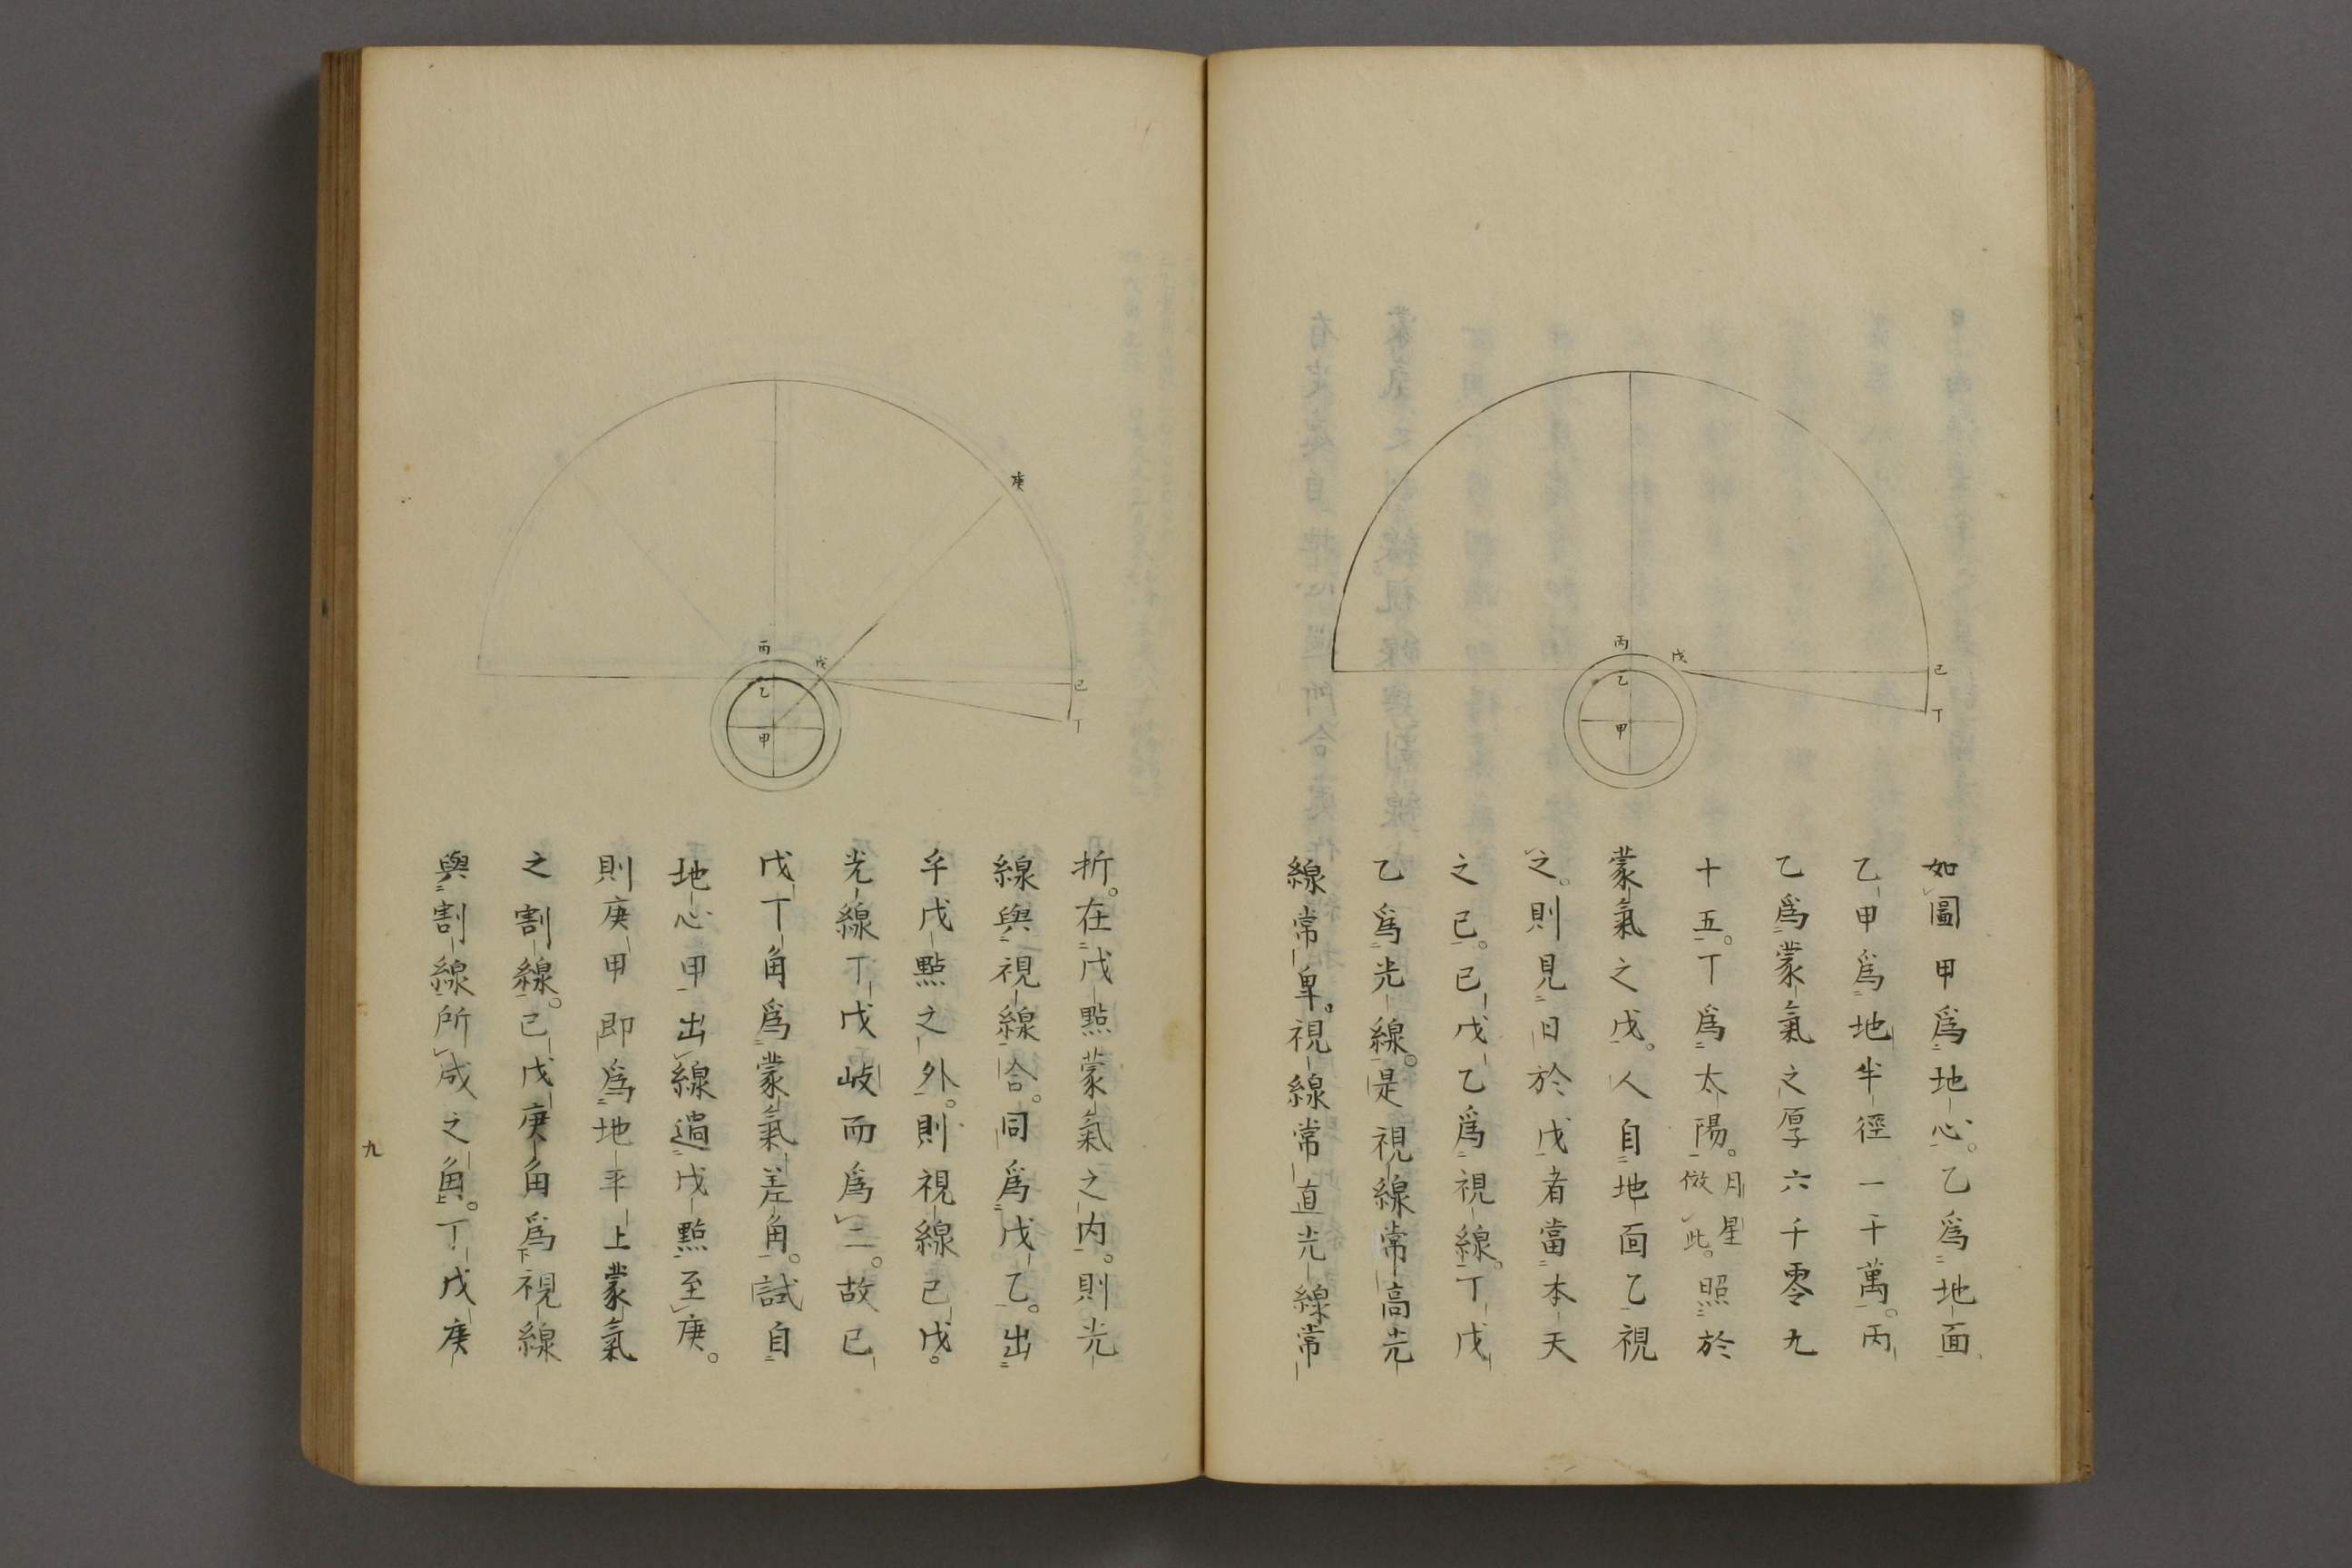 丙
戊
乙
甲
己
丁
如圖甲爲地心。乙爲地面
乙甲爲地半徑一千萬。丙
乙爲蒙氣之厚六千零九
十五。丁爲太陽。月星倣此。照於
蒙氣之戊。人自地面乙視
之。則見日於戊者當本天
之已。已戊乙爲視線。丁戊
乙爲光線。是視線常高光
線常卑。視線常直光線常
庚
丙
戊
乙
甲
己
丁
折。在戊點蒙氣之内。則光
線與視線合。同爲戊乙。出
乎戊點之外。則視線已戊。
光線丁戊岐而爲二。故已
戊丁角爲蒙氣差角。試自
地心甲出線過戊點至庚。
則庚甲即爲地平上蒙氣
之割線。已戊庚角爲視線
與割線所成之角。丁戊庚
九